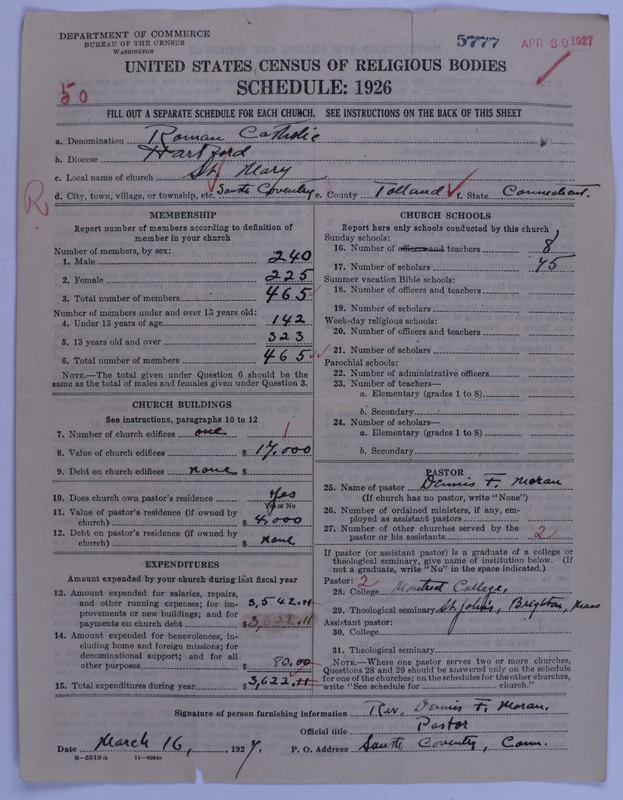 DEPARTMENT OF COMMERCE
BUREAU OF THE CENSUS
WASHINGTON
5777
APR 30 1927
UNITED STATES CENSUS OF RELIGIOUS BODIES
SCHEDULE: 1926
50
FILL OUT A SEPARATE SCHEDULE FOR EACH CHURCH. SEE INSTRUCTIONS ON THE BACK OF THIS SHEET
a. Denomination Roman Catholic
b. Diocese Hartford
c. Local name of church St. Mary
d. City, town, village, or township, etc. South Coventry e. County Tolland f. State Connecticut.
R
MEMBERSHIP
Report number of members according to definition of member in your church
Number of members, by sex:
1. Male 240
2. Female 225
3. Total number of members 465
Number of members under and over 13 years old:
4. Under 13 years of age 142
5. 13 years old and over 323
6. Total number of members 465
NOTE.—The total given under Question 6 should be the same as the total of males and females given under Question 3.
CHURCH BUILDINGS
See instructions, paragraphs 10 to 12
7. Number of church edifices one 1
8. Value of church edifices $ 17,000
9. Debt on church edifices none $
10. Does church own pastor's residence Yes
Yes or No
11. Value of pastor's residence (if owned by church) $ 4,000
12. Debt on pastor's residence (if owned by church) $ none
EXPENDITURES
Amount expended by your church during last fiscal year
13. Amount expended for salaries, repairs, and other running expenses; for improvements or new buildings; and for payments on church debt $ 3,542.11
3,622.11
14. Amount expended for benevolences, including home and foreign missions; for denominational support; and for all other purposes $ 80.00
15. Total expenditures during year $ 3,622.11
CHURCH SCHOOLS
Report here only schools conducted by this church
Sunday schools:
16. Number of officers and teachers 8
17. Number of scholars 75
Summer vacation Bible schools:
18. Number of officers and teachers
19. Number of scholars
Week-day religious schools:
20. Number of officers and teachers
21. Number of scholars
Parochial schools:
22. Number of administrative officers
23. Number of teachers—
a. Elementary (grades 1 to 8)
b. Secondary
24. Number of scholars—
a. Elementary (grades 1 to 8)
b. Secondary
PASTOR
25. Name of pastor Dennis F. Moran
(If church has no pastor, write "None")
26. Number of ordained ministers, if any, employed as assistant pastors
27. Number of other churches served by the pastor or his assistants 2
If pastor (or assistant pastor) is a graduate of a college or theological seminary, give name of institution below. (If not a graduate, write "No" in the space indicated.)
Pastor: 2
28. College Montreal College,
29. Theological seminary St. John's, Brighton, Mass
Assistant pastor:
30. College
31. Theological seminary
NOTE.—Where one pastor serves two or more churches, Questions 28 and 29 should be answered only on the schedule for one of the churches; on the schedules for the other churches, write "See schedule for church."
Signature of person furnishing information Rev. Dennis F. Moran.
Official title Pastor
Date March 16, 1927. P. O. Address South Coventry, Conn.